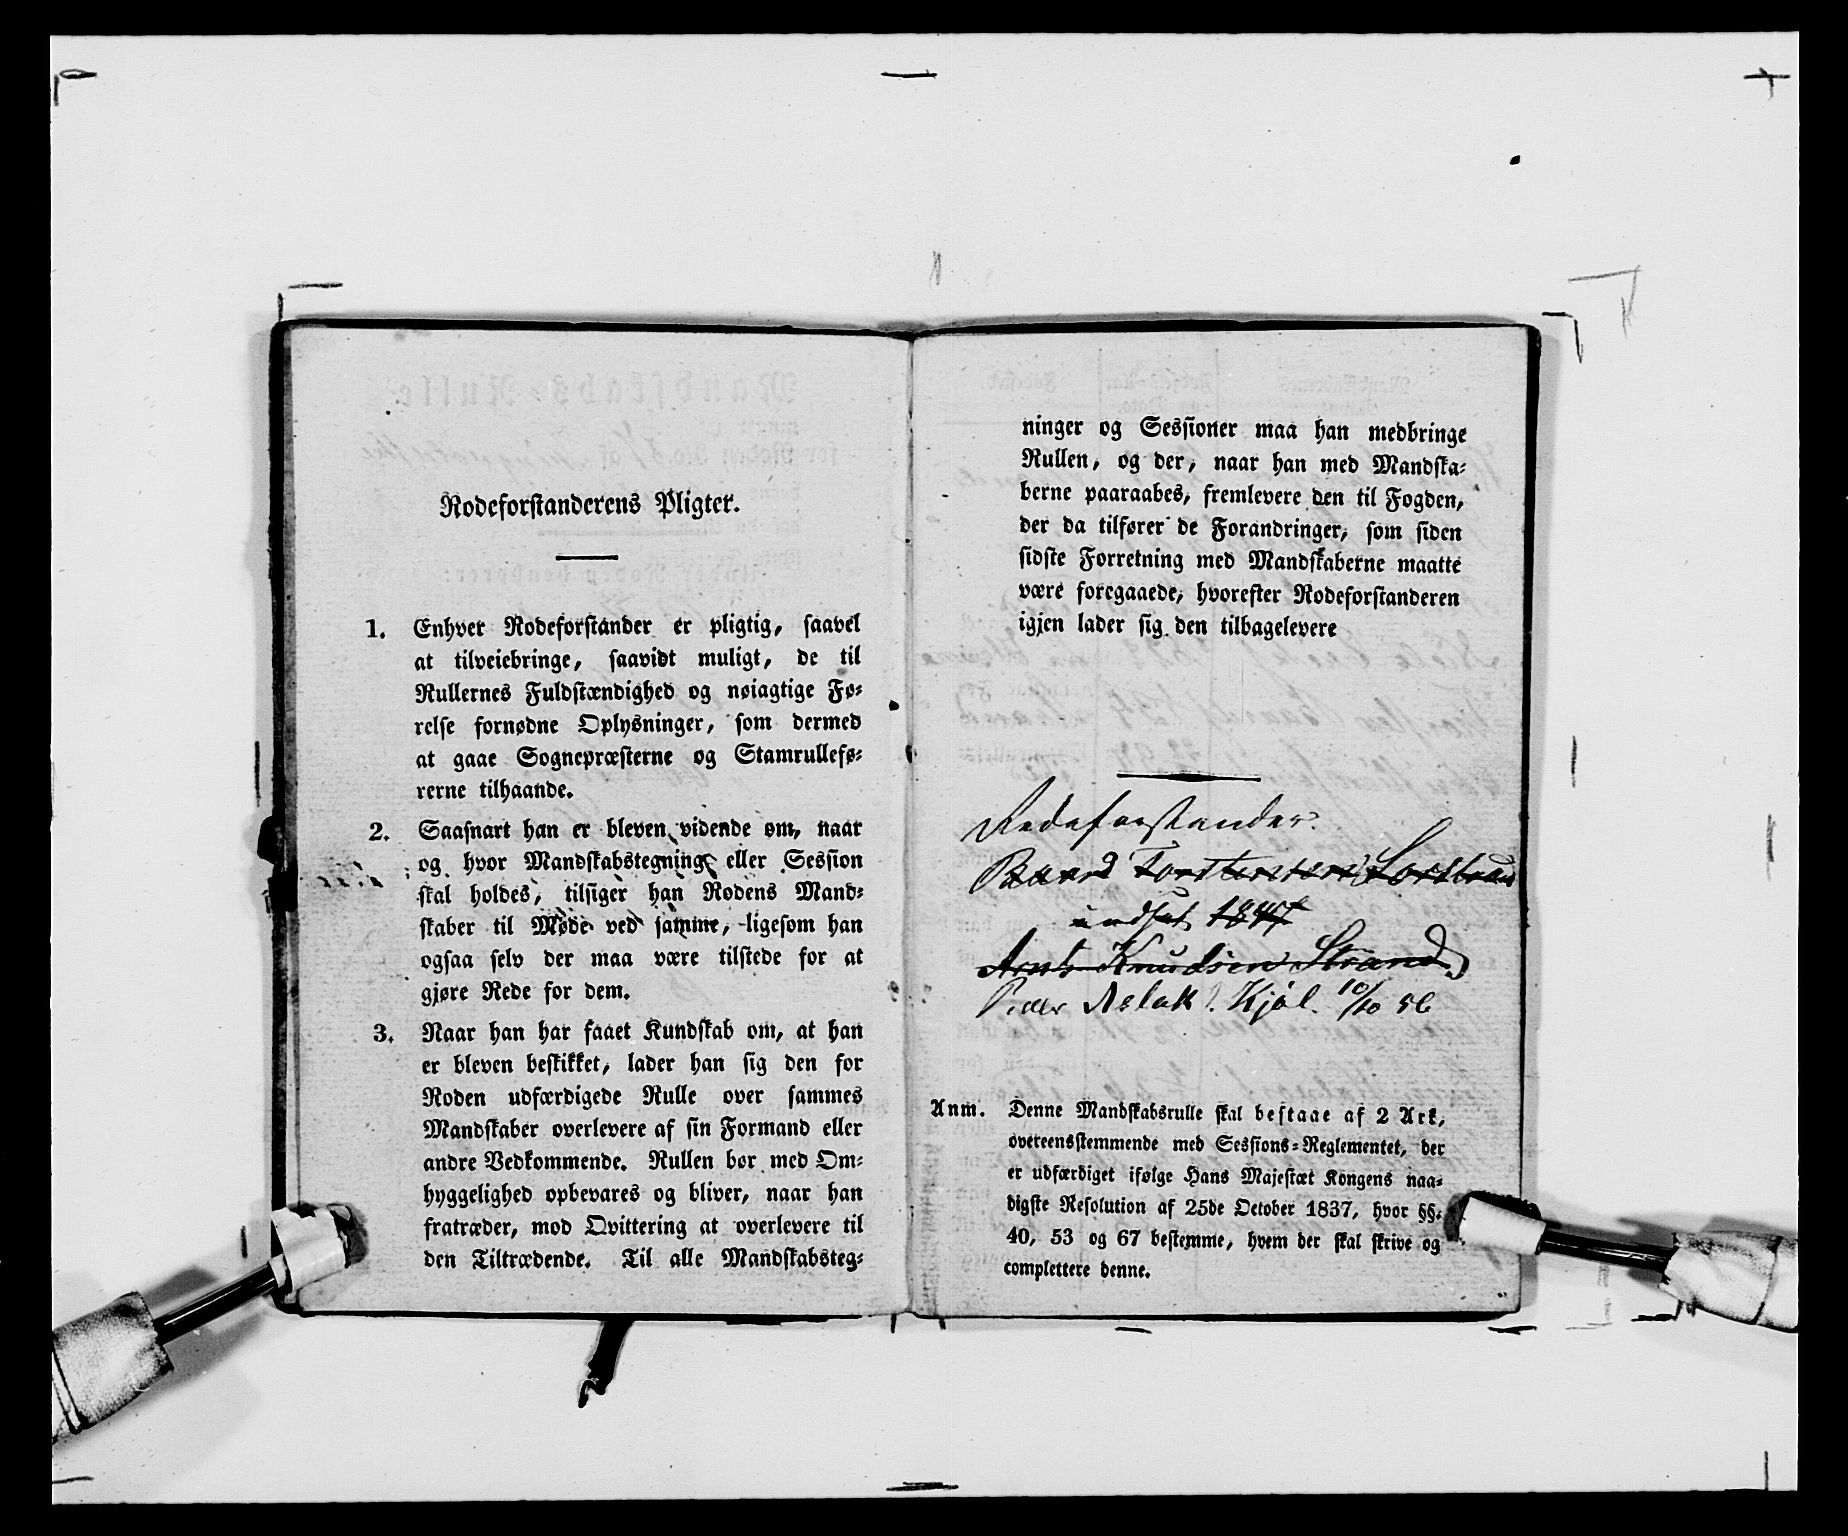 Rodeforstanderens Pligter.
1. Enhver Rodeforstander er pligtig, saavel
at tilveiebringe, saavidt muligt, de til
Rullernes Fuldstændighed og nøiagtige Fø-
relse fornødne Oplysninger, som dermed
at gaae Sognepræsterne og Stamrullefø-
rerne tilhaande.
2. Saasnart han er bleven vidende om, naar
og hvor Mandskabstegning eller Session
skal holdes, tilsiger han Rodens Mand-
skaber til Møde ved samme, ligesom han
ogsaa selv der maa være tilstede for at
gjøre Rede for dem.
3. Naar han har faaet Kundskab om, at han
er bleven beskikket, lader han sig den for
Roden udfærdigede Rulle over sammes
Mandskaber overlevere af sin Formand eller
andre Vedkommende. Rullen bør med Om-
hyggelighed opbevares og bliver, naar han
fratræder, mod Qvittering at overlevere til
den Tiltrædende. Til alle Mandskabsteg-
ninger og Sessioner maa han medbringe
Rullen, og der, naar han med Mandska-
berne paaraabes, fremlevere den til Fogden,
der da tilfører de Forandringer, som siden
sidste Forretning med Mandskaberne maatte
være foregaaede, hvorefter Rodeforstanderen
igjen lader sig den tilbagelevere
Rodeforstander.
Baard Torstensen
indsat 1847
Arnt Knudsen Strand
Peder Aslak Kjøl 10/10 56
Anm. Denne Mandskabsrulle skal bestaae af 2 Ark,
overeensstemmende med Sessions-Reglementet, der
er udfærdiget ifølge Hans Majestæt Kongens naa-
digste Resolution af 25de October 1837, hvor §§.
40, 53 og 67 bestemme, hvem der skal skrive og
complettere denne.